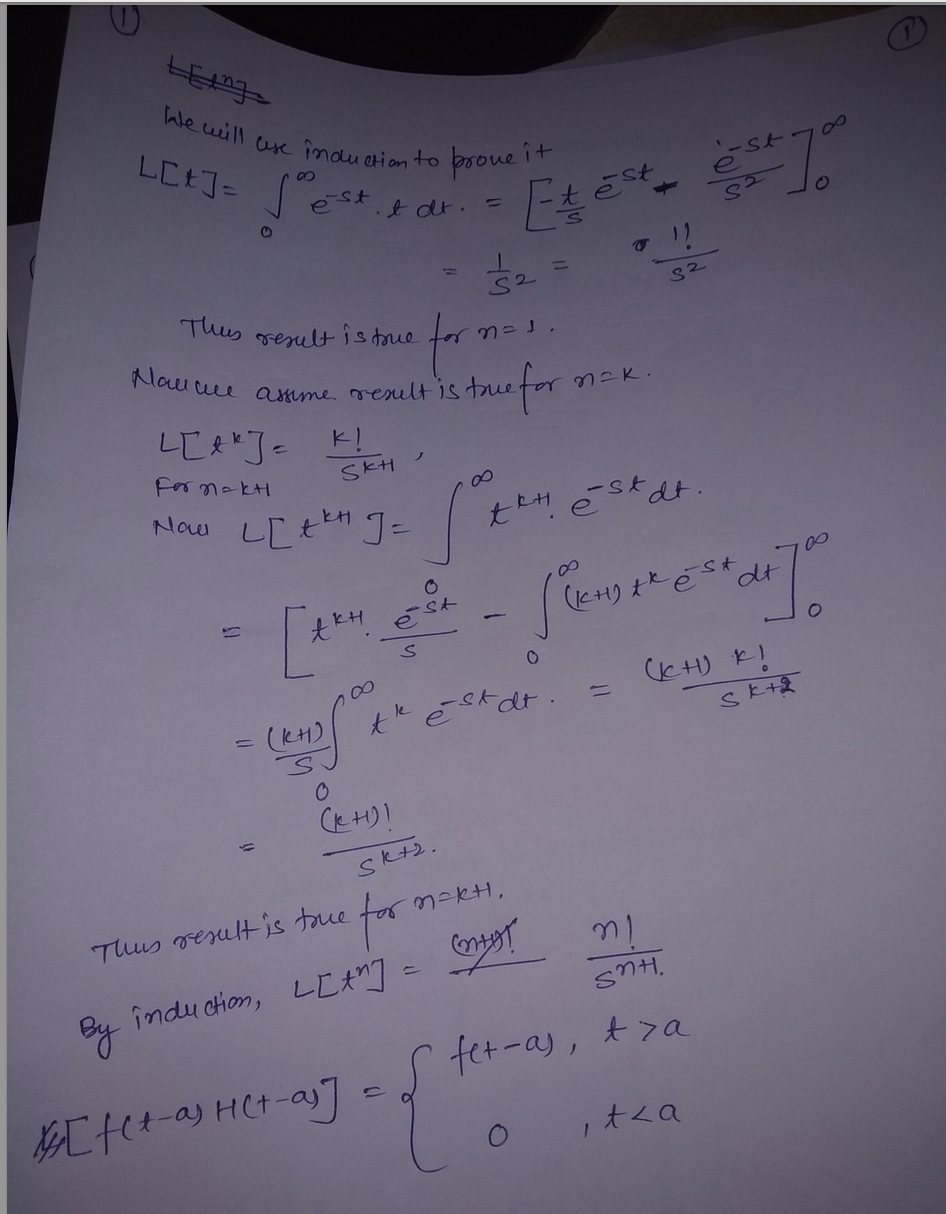 (1) (1)
L[t^n]
We will use induction to prove it
L[t] = ∫_0^∞ e^{-st} . t dt . = [ -t/s e^{-st} - e^{-st}/s^2 ]_0^∞
= 1/s^2 = 1!/s^2
Thus result is true for n=1.
Now we assume result is true for n=k.
L[t^k] = k!/s^{k+1} ,
For n=k+1
Now L[t^{k+1}] = ∫_0^∞ t^{k+1} . e^{-st} dt .
= [ t^{k+1} . e^{-st}/s - ∫_0^∞ (k+1) t^k e^{-st} dt ]_0^∞
= (k+1)/s ∫_0^∞ t^k e^{-st} dt . = (k+1) k!/s^{k+2}
= (k+1)!/s^{k+2} .
Thus result is true for n=k+1.
By induction, L[t^n] = (n+1)! n!/s^{n+1} .
[f(t-a) H(t-a)] = { f(t-a) , t>a
0 , t<a